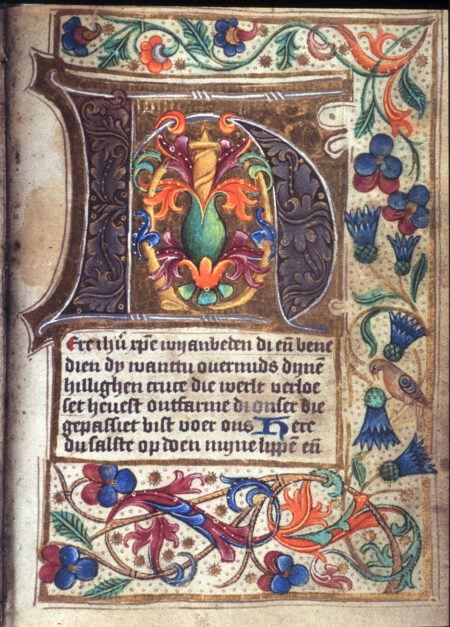 HEre ihū xpē wy anbeden di eñ bene
dien dy wantu overmids dynē
hillighen cruce die werlt verloe
set hevest ontfarme di onser die
gepassiet bist voer ons Here
du salste op doen myne lippē eñ